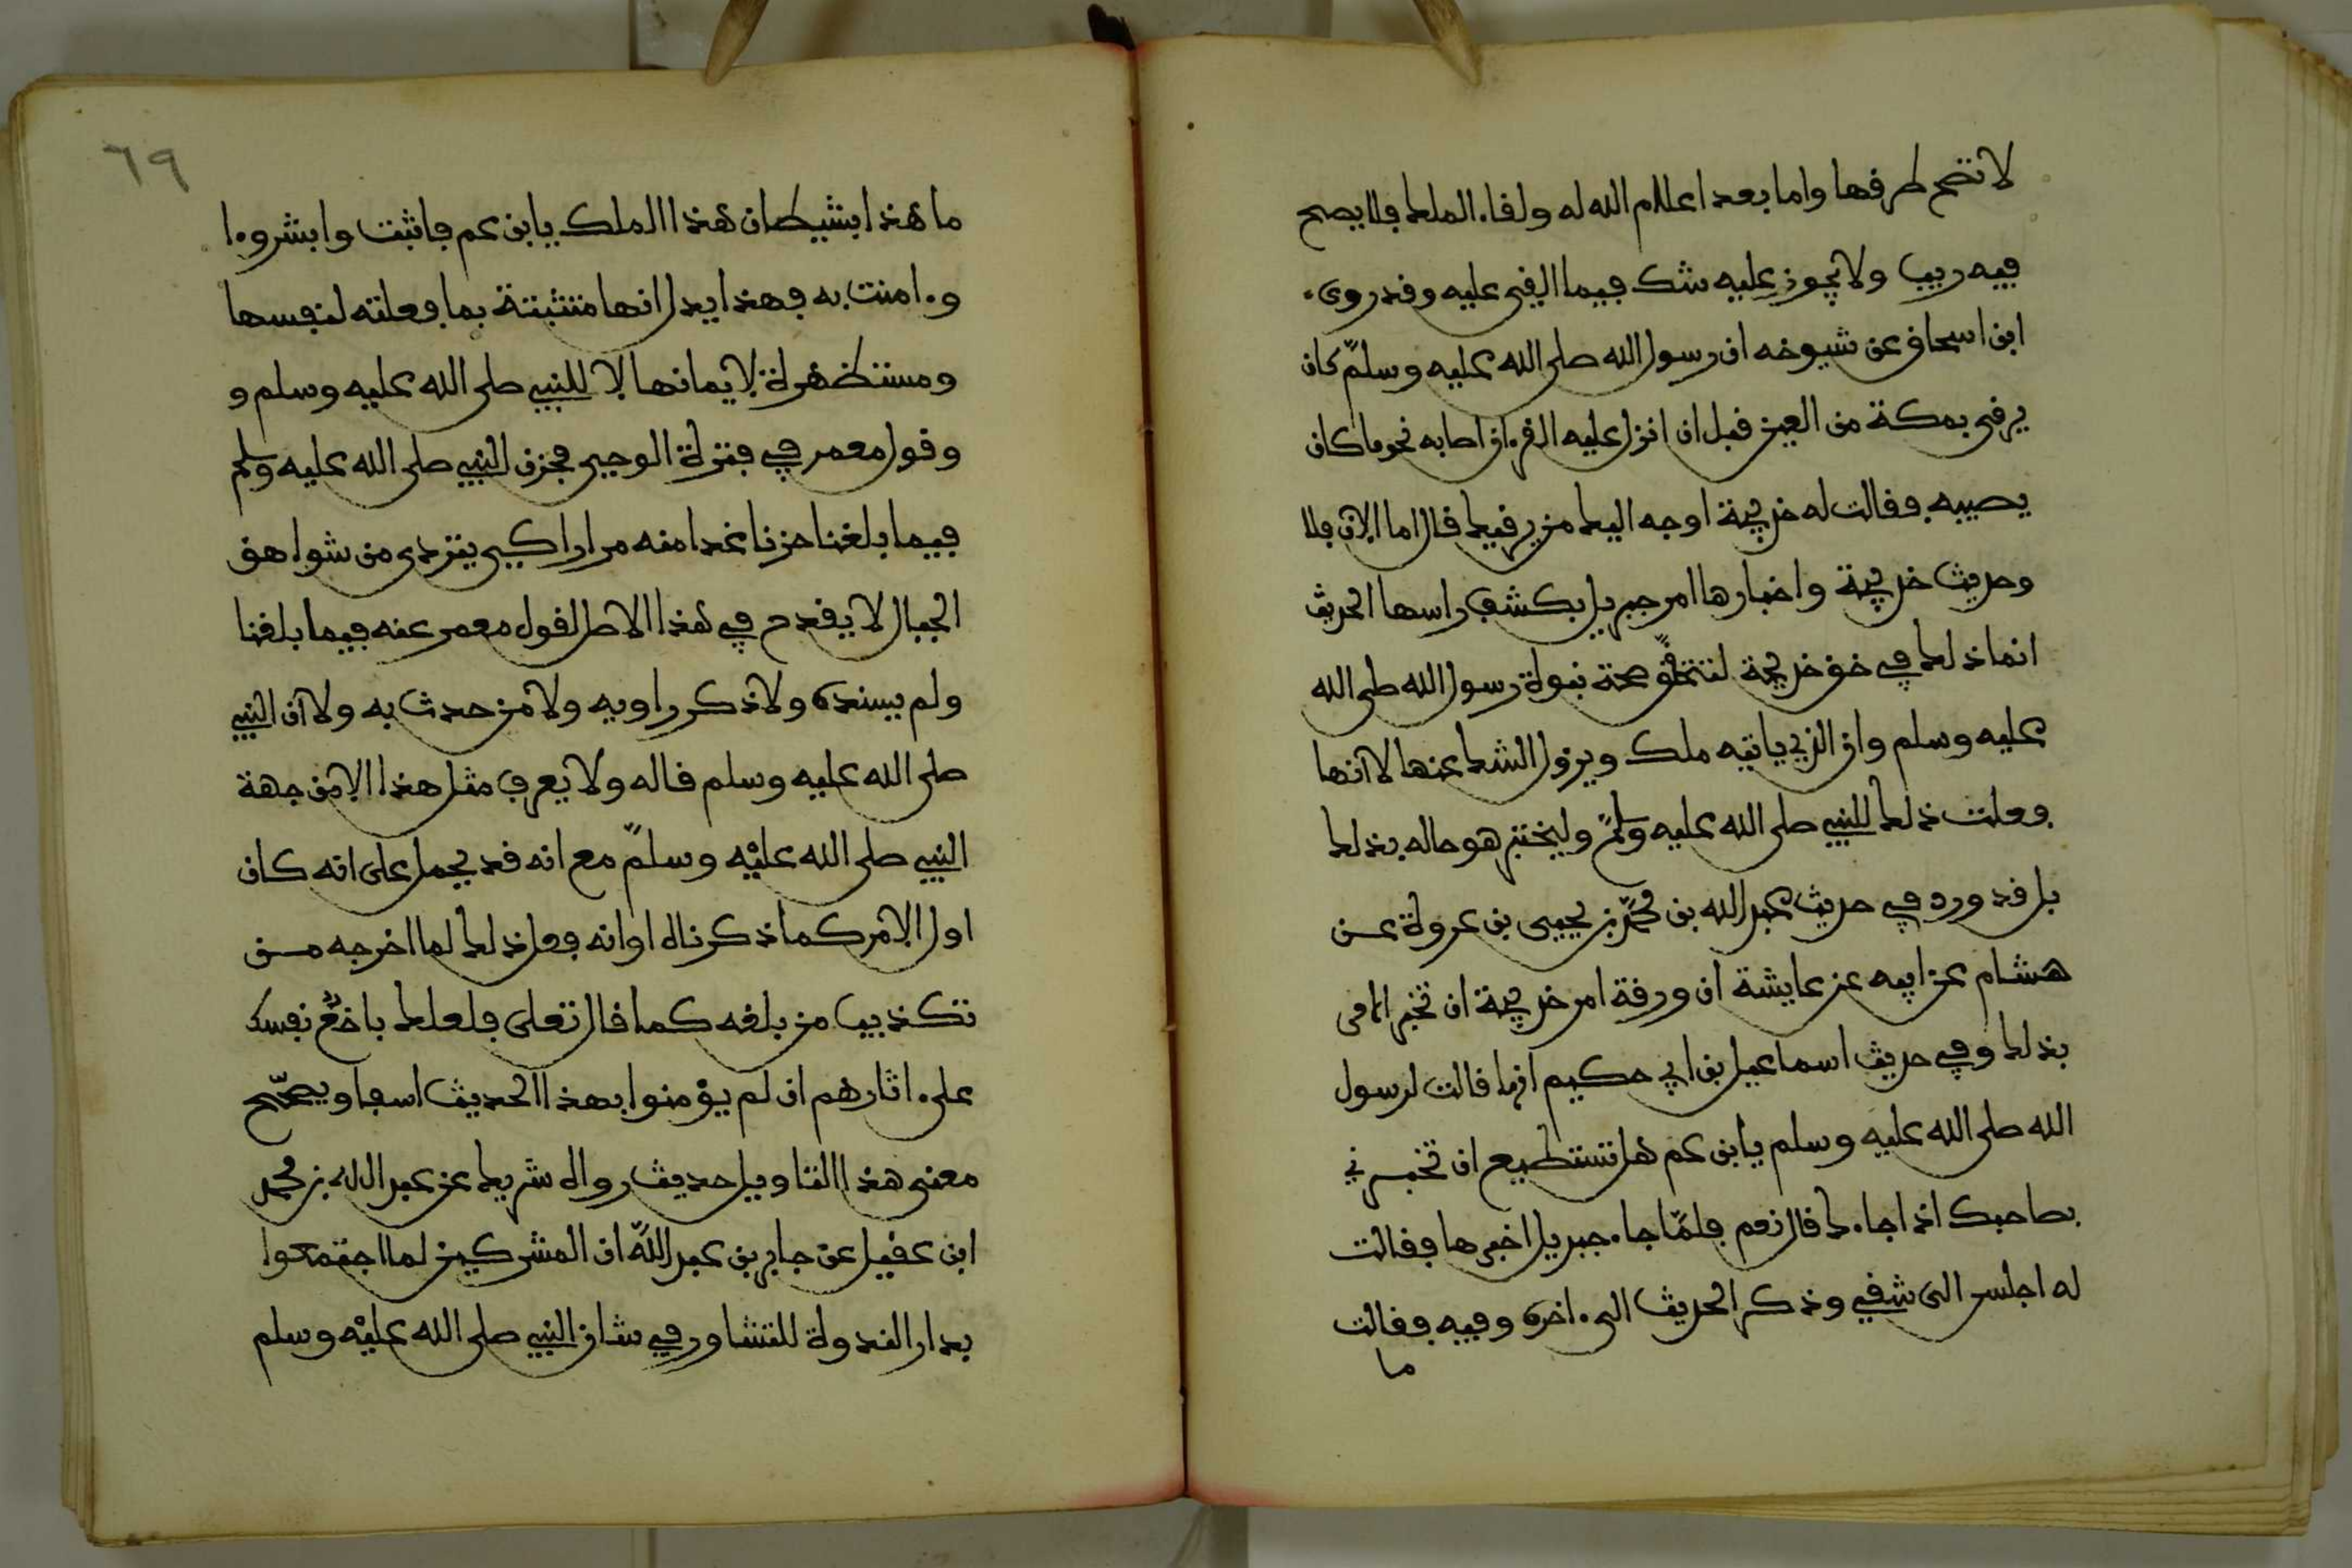 لا تصح طرفها واما بعد اعلام الله له ولقاء الملك فلا يصح
فيه ريب ولا يجوز عليه شك فيما القي عليه وقد روى
ابن اسحاق عن شيوخه ان رسول الله صلى الله عليه وسلم كان
يرقى بمكة من العين قبل ان انزل عليه القرءان اصابه نحو ما كان
يصيبه فقالت له خديجة اوجه اليك من يرقيك قال اما الان فلا
وحديث خديجة واختبارها امر جبريل بكشف راسها الحديث
انما ذلك في حق خديجة لتتحقق صحة نبوة رسول الله صلى الله
عليه وسلم وان الذي ياتيه ملك ويزول الشك عنها لا انها
فعلت ذلك للنبي صلى الله عليه وسلم وليختبر هو حاله بذلك
بل قد ورد في حديث عبد الله بن محمد بن يحيى بن عروة عن
هشام عن ابيه عن عايشة ان ورقة امر خديجة ان تخبر الامر
بذلك وفي حديث اسماعيل بن ابي حكيم انها قالت لرسول
الله صلى الله عليه وسلم يابن عم هل تستطيع ان تخبرني
بصاحبك اذا جاءك قال نعم فلما جاء جبريل اخبرها فقالت
له اجلس الى شقي وذكر الحديث الى ءاخره وفيه فقالت
ما
٦٩
ما هذا بشيطان هذا الملك يابن عم فاثبت وابشر وءا
وءامنت به فهذا يدل انها متثبتة بما فعلته لنفسها
ومستظهرة لايمانها لا للنبي صلى الله عليه وسلم و
وقول معمر في فترة الوحي فحزن النبي صلى الله عليه وسلم
فيما بلغنا حزنا غدا منه مرارا كي يتردى من شواهق
الجبال لا يقدح في هذا الاصل لقول معمر عنه فيما بلغنا
ولم يسنده ولا ذكر راويه ولا من حدث به ولا ان النبي
صلى الله عليه وسلم قاله ولا يعرف مثل هذا الا من جهة
النبي صلى الله عليه وسلم مع انه قد يحمل على انه كان
اول الامر كما ذكرناه او انه فعل ذلك لما اخرجه من
تكذيب من بلغه كما قال تعلى فلعلك باخع نفسك
على ءاثارهم ان لم يؤمنوا بهذا الحديث اسفا ويصحح
معنى هذا التاويل حديث رواه شريك عن عبد الله بن محمد
ابن عقيل عن جابر بن عبد الله ان المشركين لما اجتمعوا
بدار الندوة للتشاور في شان النبي صلى الله عليه وسلم